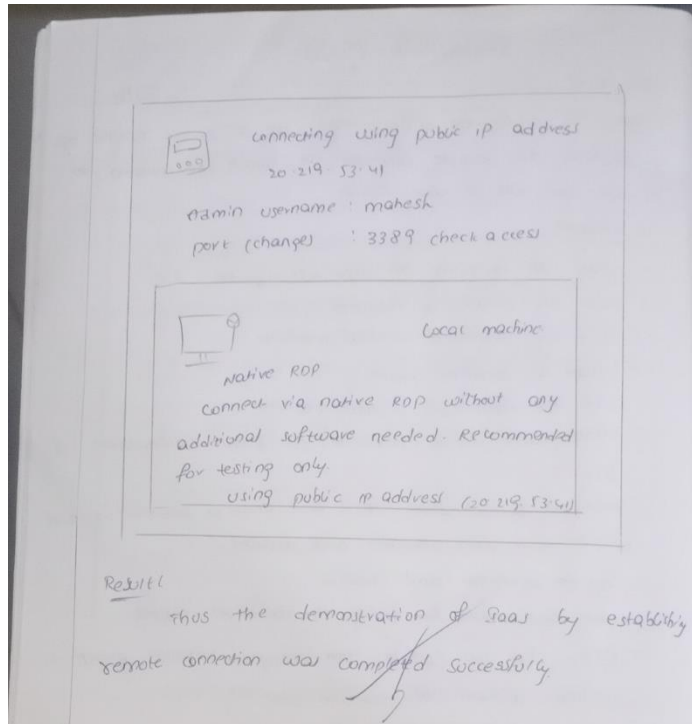 connecting using public ip address
20.219.53.41
Admin username : mahesh
port (change) : 3389 check access
Local machine
Native RDP
connect via native RDP without any
additional software needed. Recommended
for testing only.
using public ip address (20.219.53.41)
Result:
Thus the demonstration of by
remote connection was completed successfully.